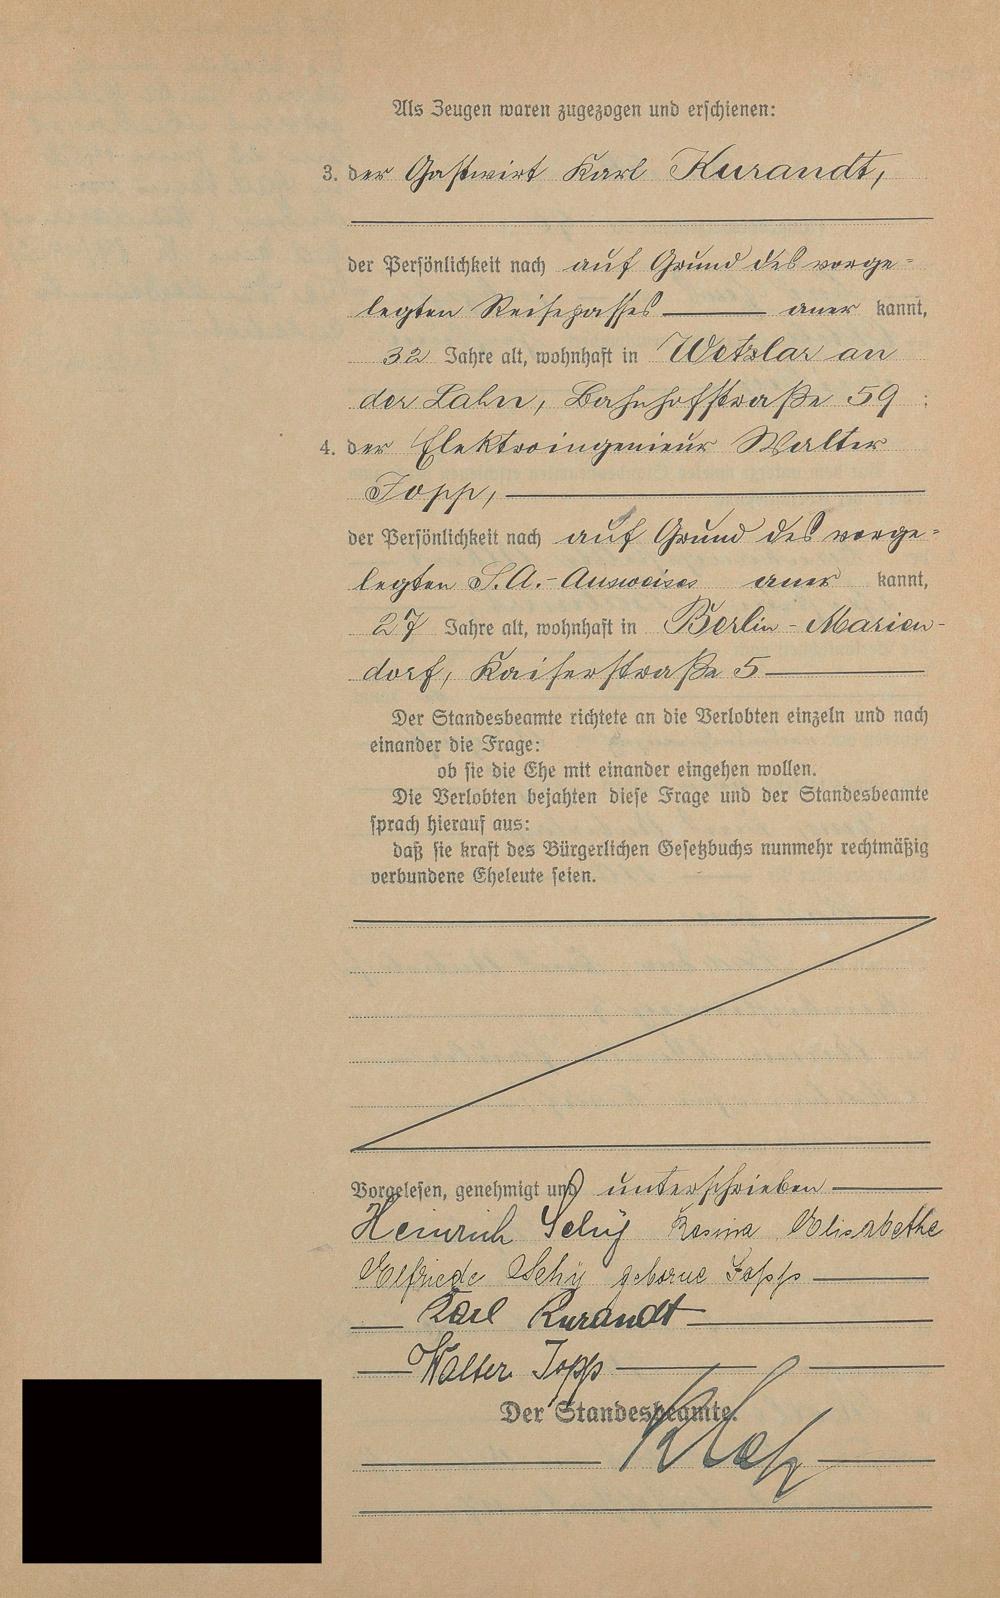 Als Zeugen waren zugezogen und erschienen:
3. der Gastwirt Karl Kurandt,
der Persönlichkeit nach auf Grund des vorge=
legten Reisepasses aner kannt,
32 Jahre alt, wohnhaft in Wetzlar an
der Lahn, Bahnhofstraße 59 ;
4. der Elektroingenieur Walter
Topp,
der Persönlichkeit nach auf Grund des vorge=
legten S.A.-Ausweises aner kannt,
27 Jahre alt, wohnhaft in Berlin-Marien-
dorf, Kaiserstraße 5
Der Standesbeamte richtete an die Verlobten einzeln und nach
einander die Frage:
ob sie die Ehe mit einander eingehen wollen.
Die Verlobten bejahten diese Frage und der Standesbeamte
sprach hierauf aus:
daß sie kraft des Bürgerlichen Gesetzbuchs nunmehr rechtmäßig
verbundene Eheleute seien.
Vorgelesen, genehmigt und unterschrieben
Heinrich Schÿ Rosina Elisabethe
Elfriede Schÿ geborne Topp
Karl Kurandt
Walter Topp
Der Standesbeamte.